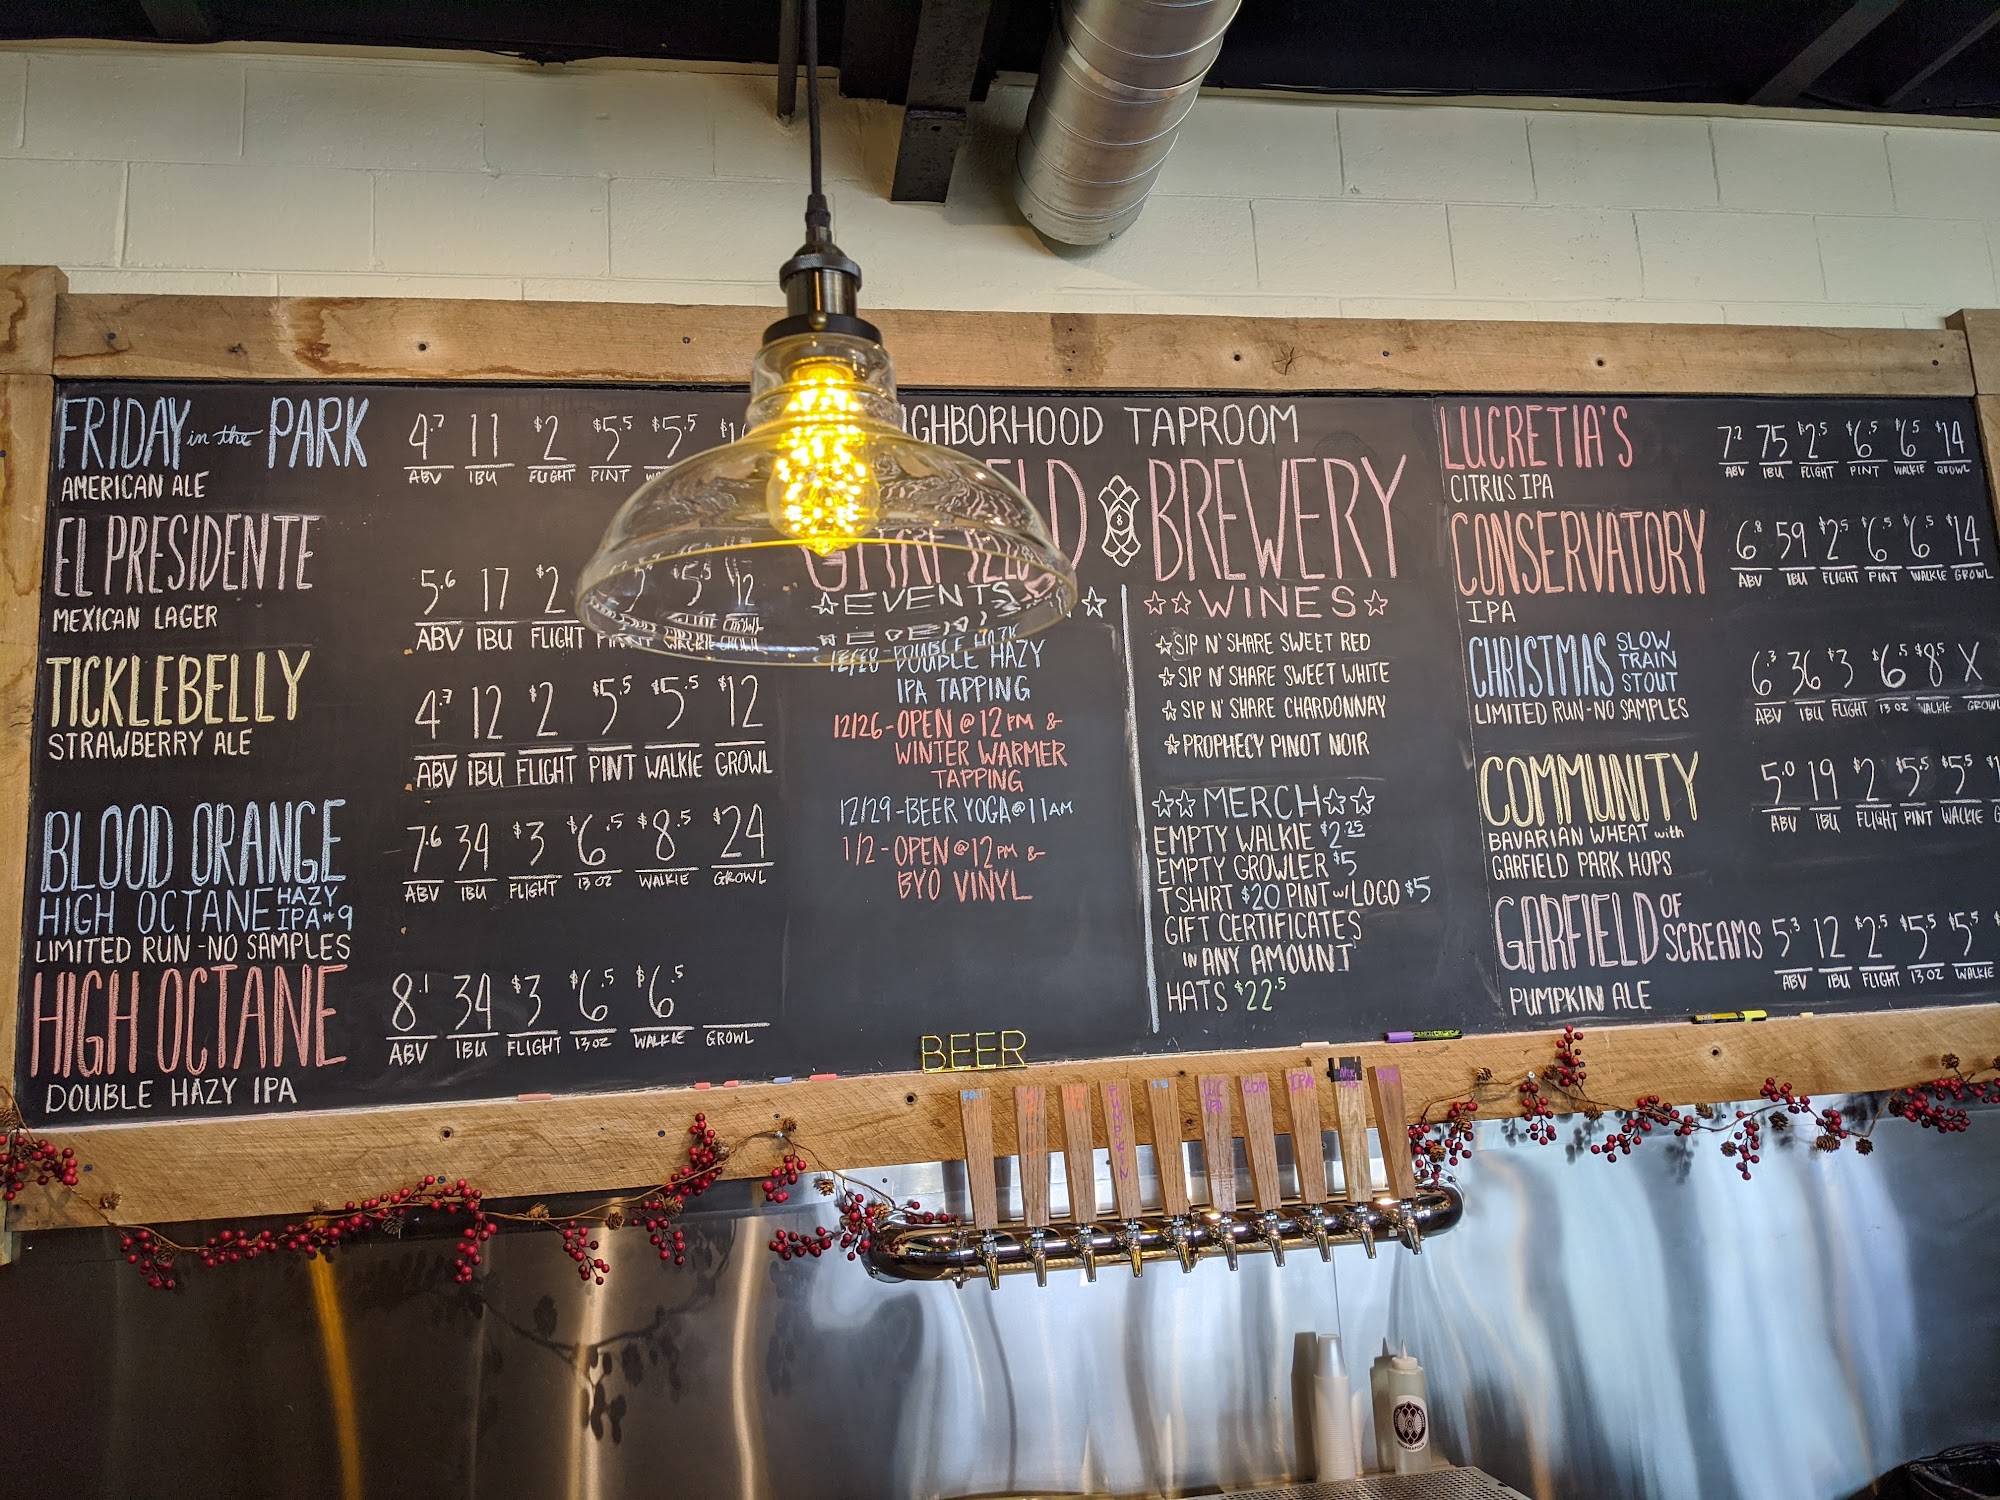 FRIDAY in the PARK
AMERICAN ALE
4.7 11 $2 $5.5 $5.5
ABV IBU FLIGHT PINT
EL PRESIDENTE
MEXICAN LAGER
5.6 17 $2 $5.5 12
ABV IBU FLIGHT WALKIE GROWL
TICKLEBELLY
STRAWBERRY ALE
4.7 12 $2 $5.5 $5.5 $12
ABV IBU FLIGHT PINT WALKIE GROWL
BLOOD ORANGE
HIGH OCTANE HAZY
IPA #9
LIMITED RUN - NO SAMPLES
7.6 34 $3 $6.5 $8.5 $24
ABV IBU FLIGHT 13 OZ WALKIE GROWL
HIGH OCTANE
DOUBLE HAZY IPA
8.1 34 $3 $6.5 $6.5
ABV IBU FLIGHT 13 OZ WALKIE GROWL
TAPROOM
BREWERY
☆EVENTS☆
12/20-DOUBLE HAZY
IPA TAPPING
12/26-OPEN @ 12 PM &
WINTER WARMER
TAPPING
12/29-BEER YOGA @ 11 AM
1/2-OPEN @ 12 PM &
BYO VINYL
☆☆WINES☆
☆SIP N' SHARE SWEET RED
☆SIP N' SHARE SWEET WHITE
☆SIP N' SHARE CHARDONNAY
☆PROPHECY PINOT NOIR
☆☆MERCH☆☆
EMPTY WALKIE $2.25
EMPTY GROWLER $5
T SHIRT $20 PINT w/ LOGO $5
GIFT CERTIFICATES
IN ANY AMOUNT
HATS $22.5
LUCRETIA'S
CITRUS IPA
7.2 75 $2.5 $6.5 $6.5 $14
ABV IBU FLIGHT PINT WALKIE GROWL
CONSERVATORY
IPA
6.8 59 $2.5 $6.5 $6.5 $14
ABV IBU FLIGHT PINT WALKIE GROWL
CHRISTMAS SLOW
TRAIN
STOUT
LIMITED RUN - NO SAMPLES
6.3 36 $3 $6.5 $8.5 X
ABV IBU FLIGHT 13 OZ WALKIE GROWL
COMMUNITY
BAVARIAN WHEAT with
GARFIELD PARK HOPS
5.0 19 $2 $5.5 $5.5
ABV IBU FLIGHT PINT WALKIE
GARFIELD OF
SCREAMS
PUMPKIN ALE
5.3 12 $2.5 $5.5 $5.5
ABV IBU FLIGHT 13 OZ WALKIE
BEER
PUMPKIN
COM
IPA